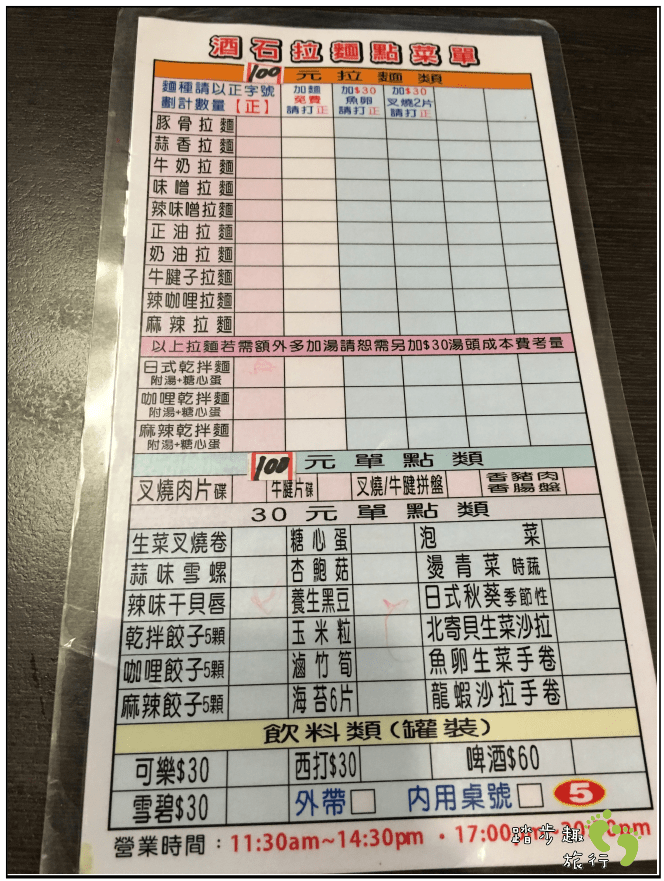 酒石拉麵點菜單
100元拉麵類
麵種請以正字號
劃計數量【正】
加麵
免費
請打正
加$30
魚卵
請打正
加$30
叉燒2片
請打正
豚骨拉麵
蒜香拉麵
牛奶拉麵
味噌拉麵
辣味噌拉麵
正油拉麵
奶油拉麵
牛腱子拉麵
辣咖哩拉麵
麻辣拉麵
以上拉麵若需額外多加湯請恕需另加$30湯頭成本費考量
日式乾拌麵
附湯+糖心蛋
咖哩乾拌麵
附湯+糖心蛋
麻辣乾拌麵
附湯+糖心蛋
100元單點類
叉燒肉片碟 牛腱片碟 叉燒/牛腱拼盤 香豬肉
香腸盤
30元單點類
生菜叉燒卷 糖心蛋 泡菜
蒜味雪螺 杏鮑菇 燙青菜時蔬
辣味干貝唇 養生黑豆 日式秋葵季節性
乾拌餃子5顆 玉米粒 北寄貝生菜沙拉
咖哩餃子5顆 滷竹筍 魚卵生菜手卷
麻辣餃子5顆 海苔6片 龍蝦沙拉手卷
飲料類(罐裝)
可樂$30 西打$30 啤酒$60
雪碧$30 外帶 內用桌號 5
營業時間：11:30am~14:30pm・17:00pm
踏步趣
旅行